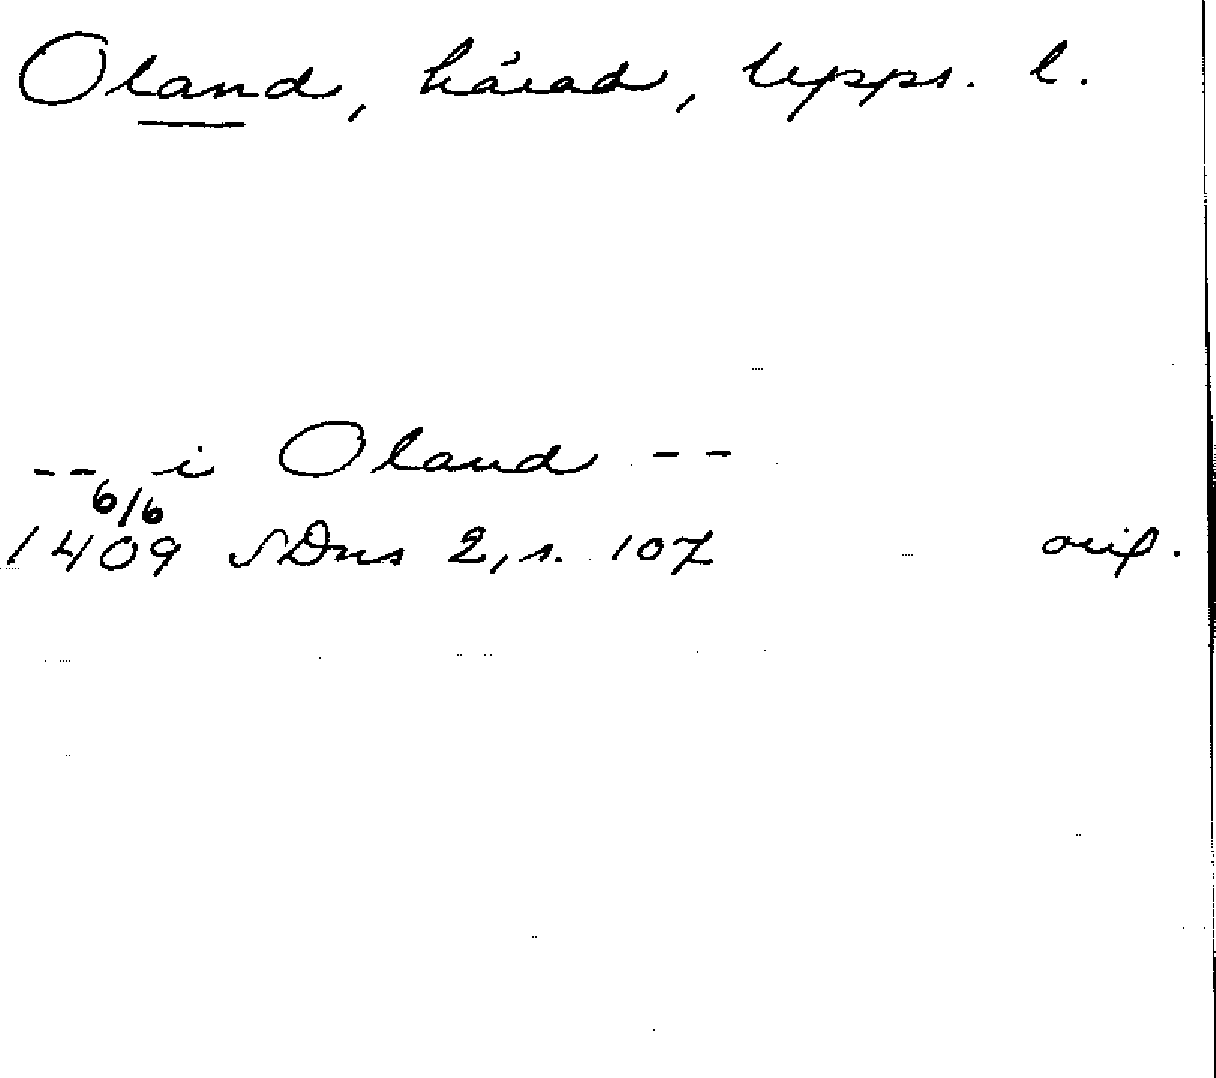 Oland, härad, Upps. l.
-- i Oland --
6/6
1409 SDns 2, s. 107 orig.